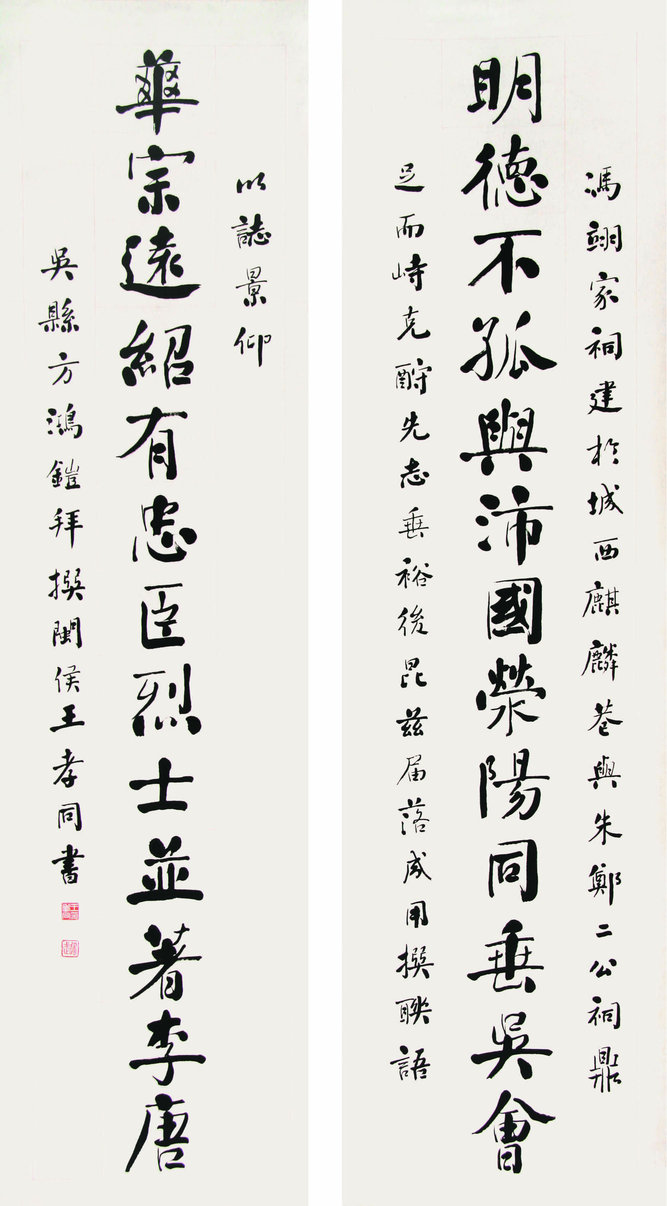 馮翊家祠建於城西麒麟巷與朱鄭二公祠鼎
明德不孤與沛國滎陽同垂吳會
足而峙克酬先志垂裕後昆茲届落成用撰聯語
以誌景仰
華宗遠紹有忠臣烈士並著李唐
吳縣方鴻鎧拜撰閩侯王孝同書